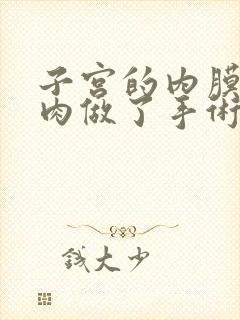 子宫的内膜
肉做了手術
钱大少